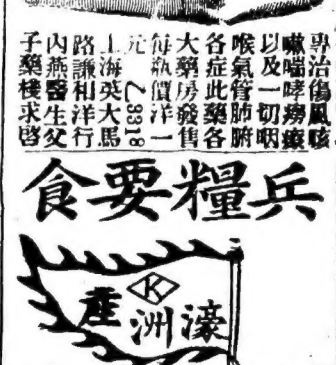 專治傷風咳
嗽喘哮癆瘵
以及一切咽
喉氣管肺腑
各症此藥各
大藥房發售
每瓶價洋一
元 乙3318
上海英大馬
路謙利洋行
內燕醫生父
子藥棧求啓
兵糧要食
K
濠洲
產